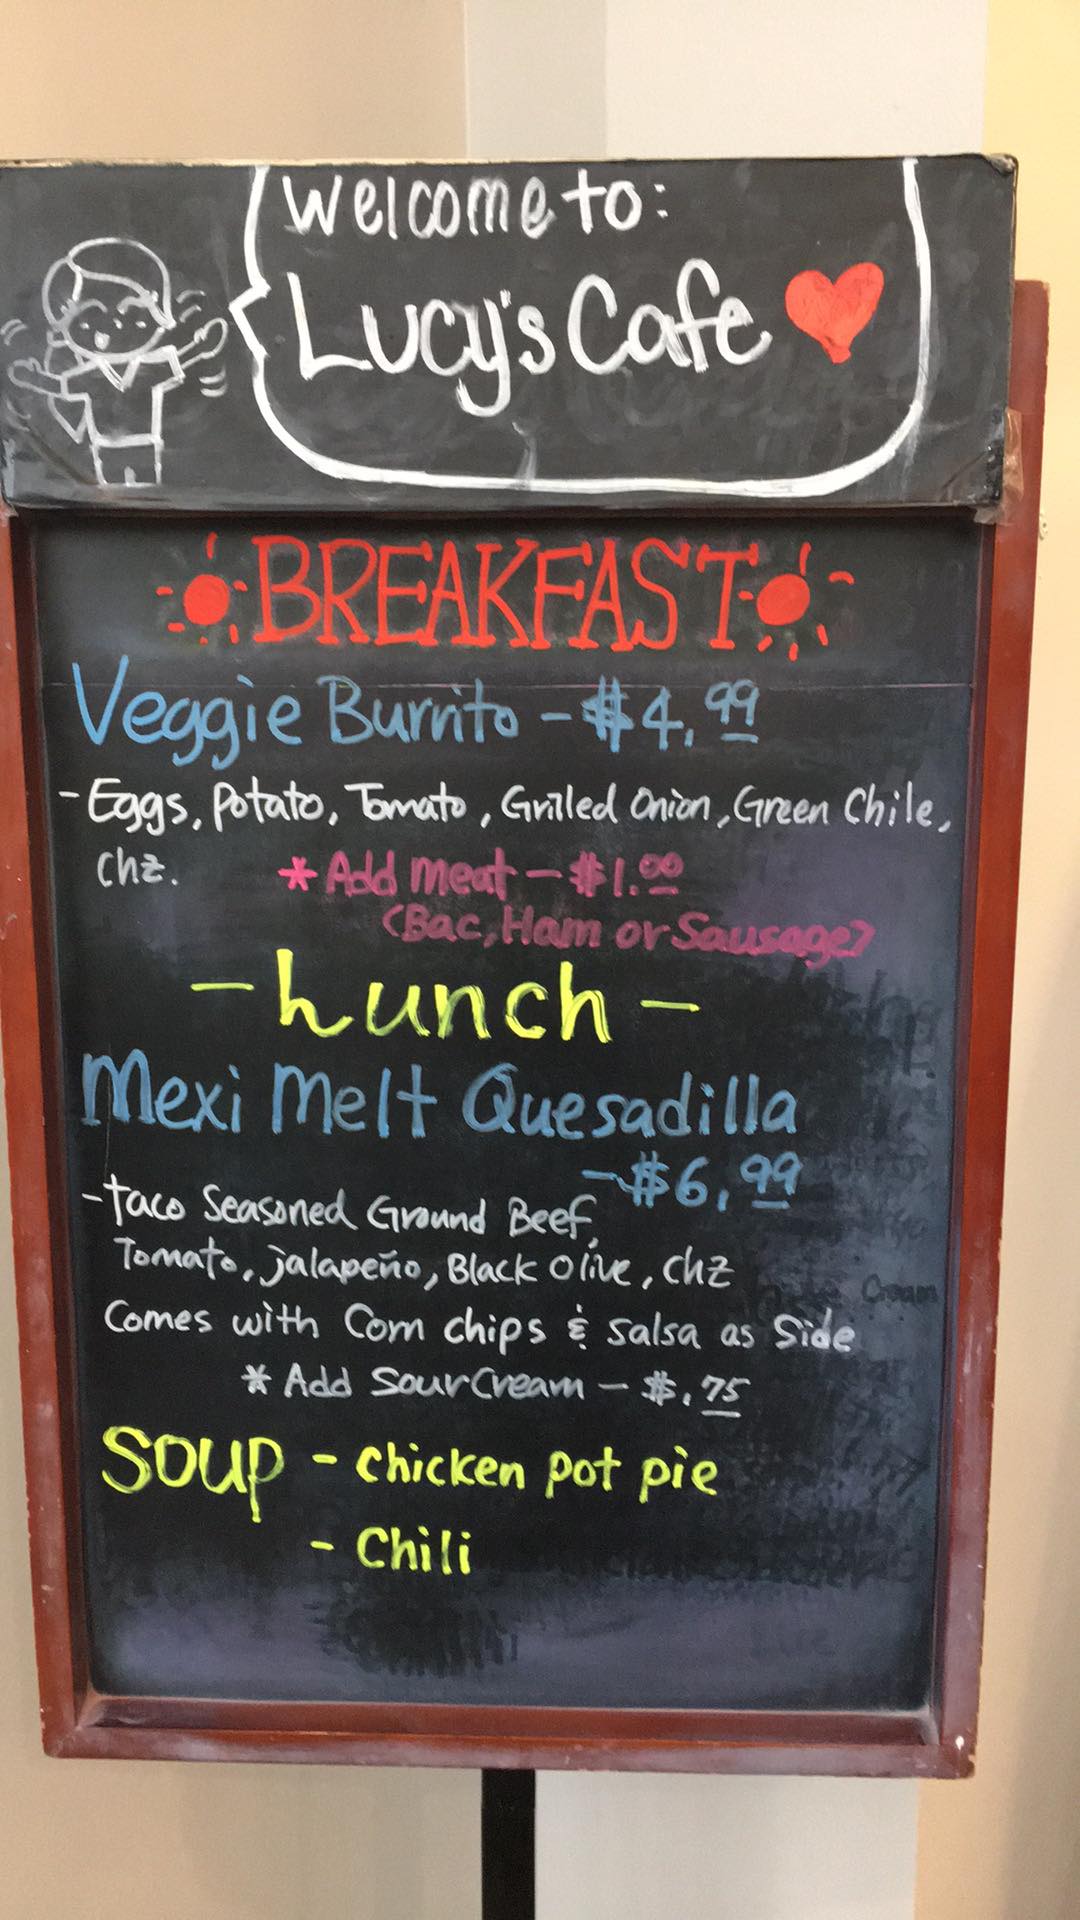 Welcome to:
Lucy's Cafe
BREAKFAST
Veggie Burrito - $4.99
- Eggs, Potato, Tomato, Grilled Onion, Green Chile,
chz.
* Add meat - $1.00
(Bac, Ham or Sausage)
- Lunch -
Mexi Melt Quesadilla
- $6.99
- taco Seasoned Ground Beef,
Tomato, jalapeño, Black olive, chz
Comes with Corn chips & salsa as Side
* Add SourCream - $.75
SOUP - chicken pot pie
- Chili